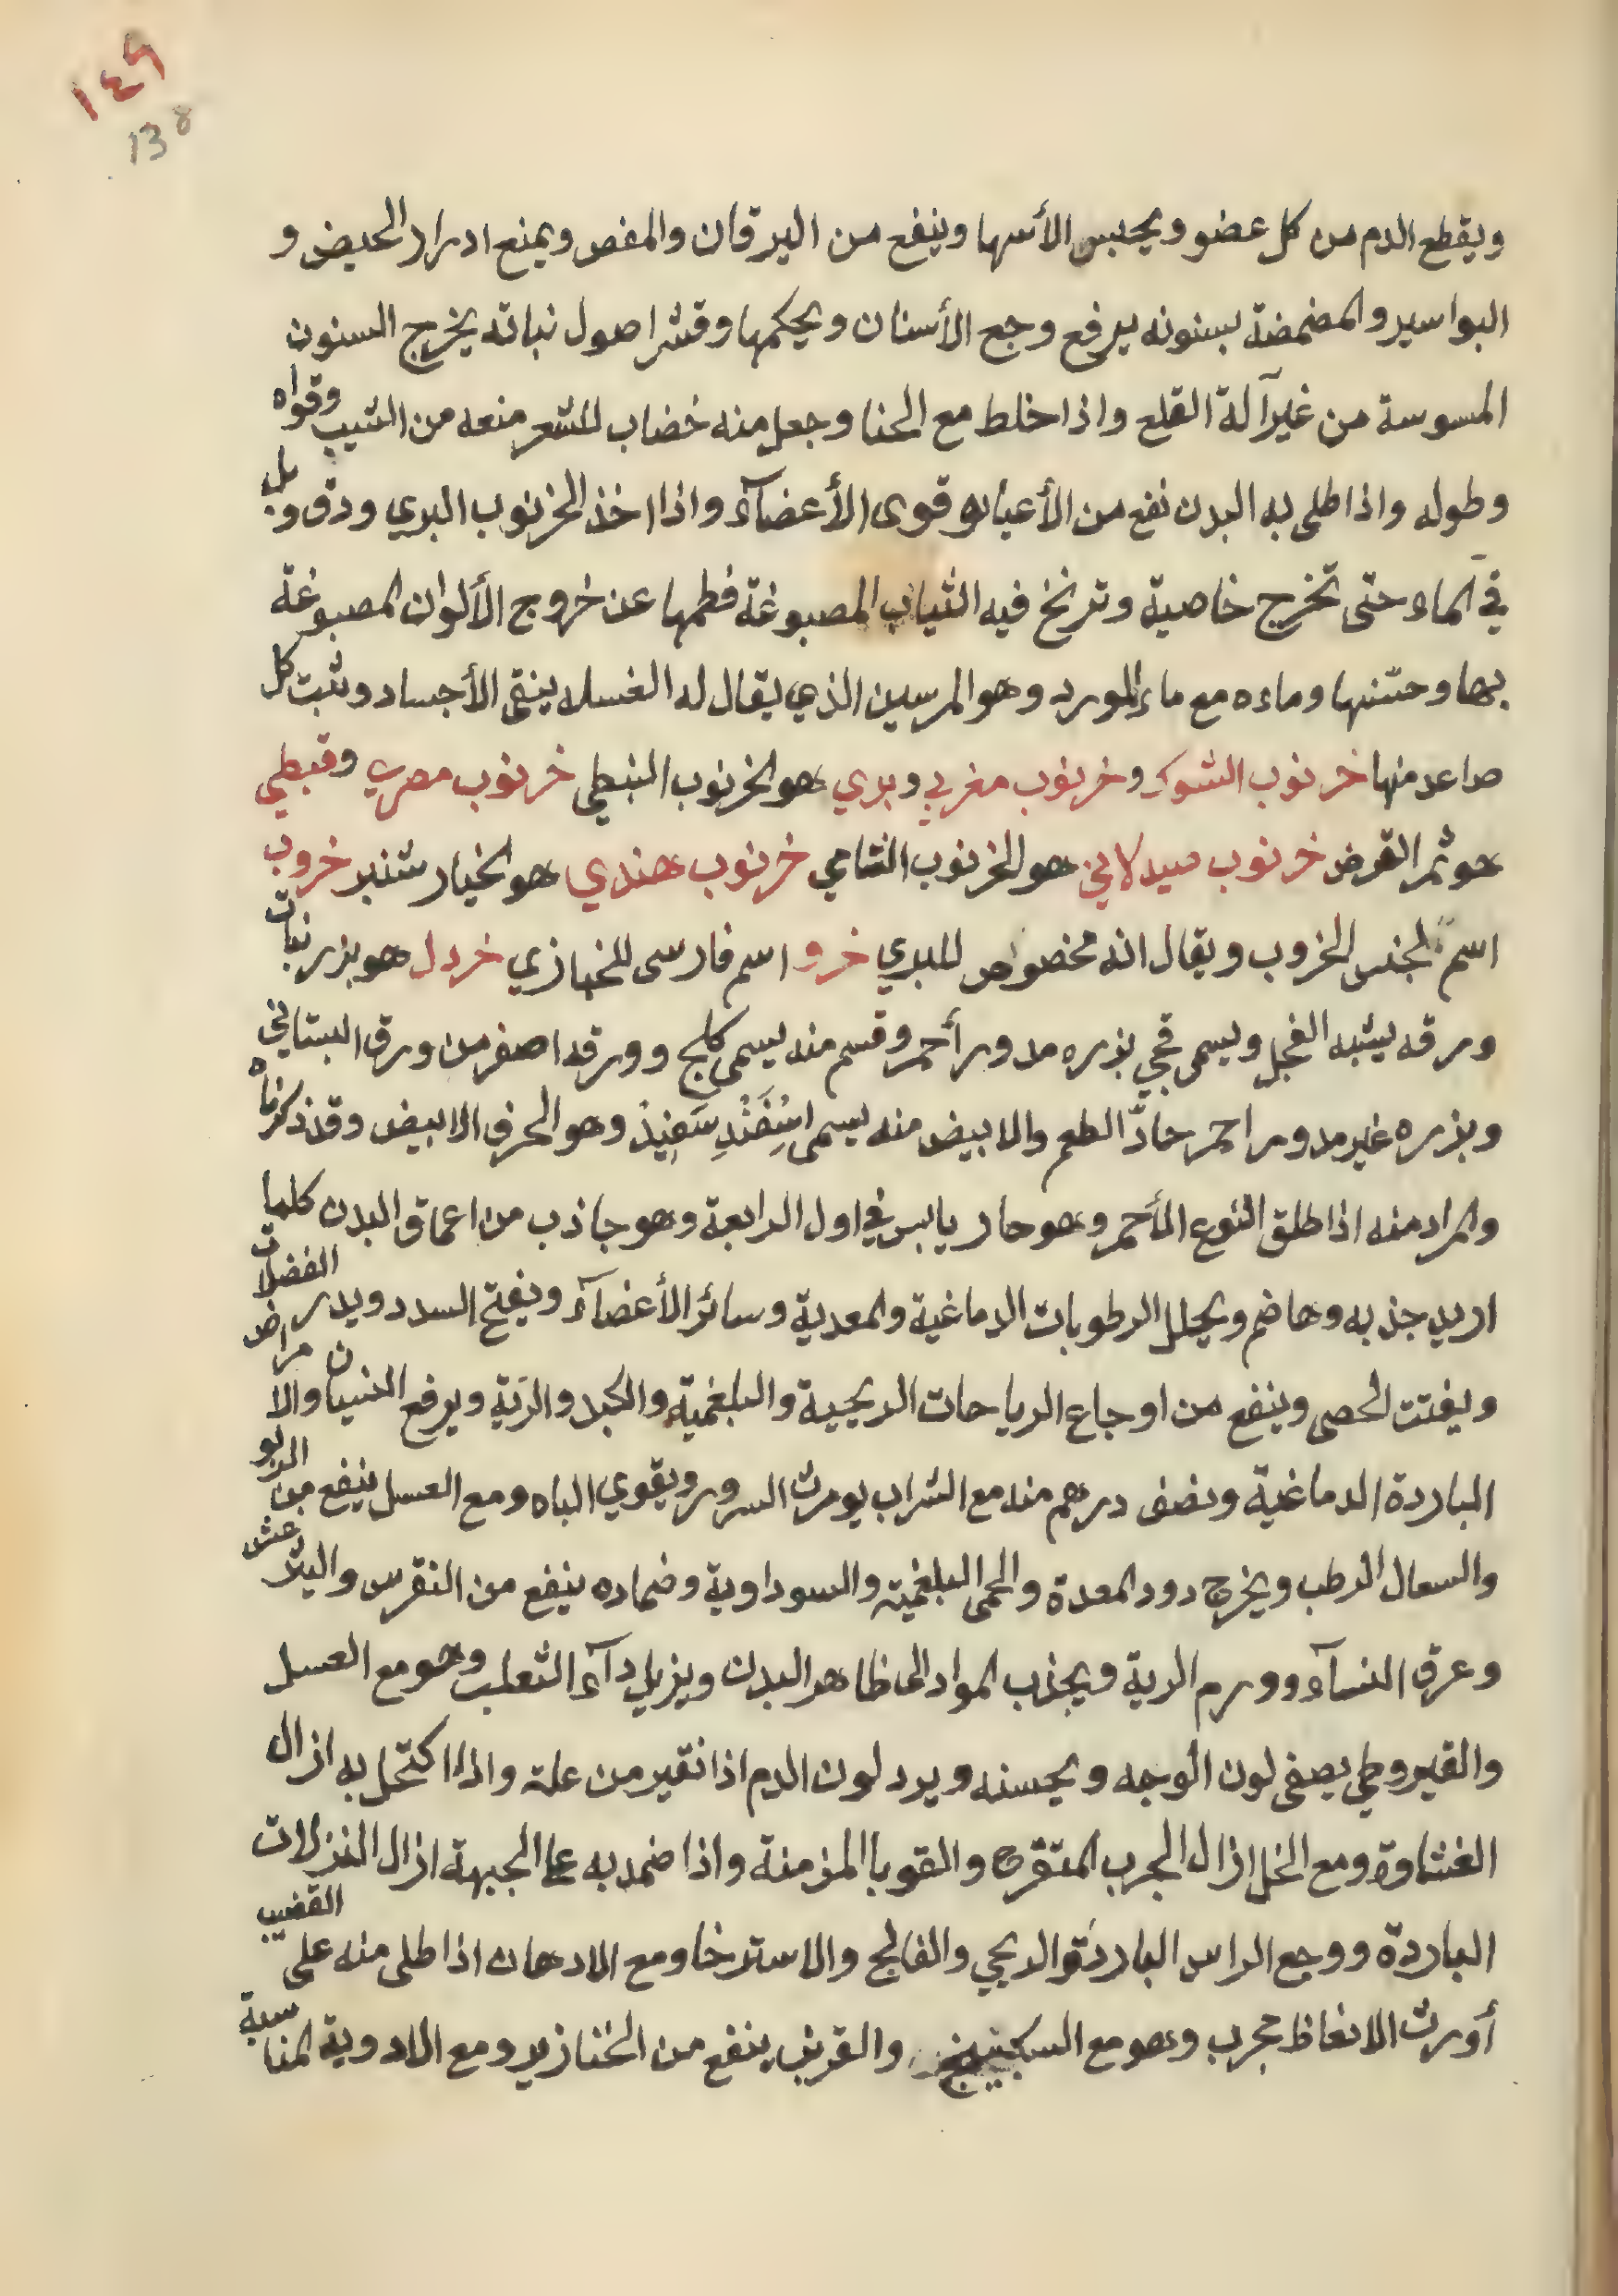 ١٤٩
138
ويقطع الدم من كل عضو ويحبس الأسها وينفع من اليرقان والمغص ويمنع ادرار الحيض و
البواسير والمضمضة بسنونه يرفع وجع الأسنان ويحكمها وقشر اصول نباته يخرج السنون
المسوسة من غير آلة القلع واذا خلط مع الحنا وجعل منه خضاب للشعر منعه من الشيب وقواه
وطوله واذا طلى به البدن نفع من الأعيا وقوى الأعضآء واذا اخذ الخرنوب البري ودق وبل
في الماء حتى تخرج خاصية وترنخ فيه الثياب المصبوغة فطمها عن خروج الألوان المصبوغة
بها وحسنها وماءه مع ماء المورد وهو المرسين الذي يقال له الغسله ينقى الأجساد وثبت كل
صاعد منها خرنوب الشوك وخرنوب مغربي وبري هو الخرنوب النبطي خرنوب مصري وقبطي
هو ثمر القرض خرنوب صيدلاني هو الخرنوب الشامي خرنوب هندي هو الخيار شنبر خروب
اسم لجنس الخروب ويقال انه مخصوص للبري خرو اسم فارسى للخبازي خردل هو بزر نبات
ورقه يشبه الفجل ويسمى قجي بذره مدور أحمر وقسم منه يسمى كلج وورقه اصفر من ورق البستاني
وبذره غير مدور احمر حادّ الطعم والابيض منه يسمى اسْفَنْدِ سَفِيدْ وهو الحرف الابيض وقد ذكرناه
والمراد منه اذا طلق النوع المأحمر وهو حار يابس في اول الرابعة وهو جاذب من اعماق البدن كلما
اريد جذبه وهاضم ويحلل الرطوبات الدماغية والمعدية وسائر الأعضآء ويفتح السدد ويدر الفضلات
ويفتت الحصى وينفع من اوجاع الرياحات الريحية والبلغمية والكبد والرية ويرفع النسيان والامراض
الباردة الدماغية ونصف درهم منه مع الشراب يورث السرور ويقوي الباه ومع العسل ينفع من الربو
والسعال الرطب ويخرج دود المعدة والحمى البلغمية والسوداوية وضماده ينفع من النقرس والليثرغش
وعرق النسآء وورم الرية ويجذب المواد الى ظاهر البدن ويزيل دآء الثعلب وهو مع العسل
والقيروطي يصفى لون الوجه ويحسنه ويرد لون الدم اذا تغير من علة واذا اكتحل به ازال
الغشاوة ومع الخل ازال الجرب المتقرح والقوبا المزمنة واذا ضمد به على الجبهة ازال النزلات
الباردة ووجع الراس الباردة والريحي والفالج والاسترخا ومع الادهان اذا طلى منه على القضيب
أورث الانعاظ مجرب وهو مع السكبينج والقريض ينفع من الخنازير ومع الادوية المناسبة